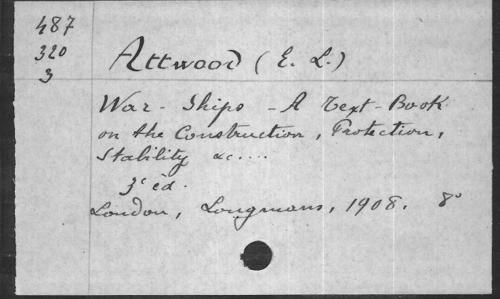 487
320
3
Attwood (E. L.)
War - Ships - A Text-Book
on the Construction, Protection,
Stability &c....
3e éd.
London, Longmans, 1908. 8°